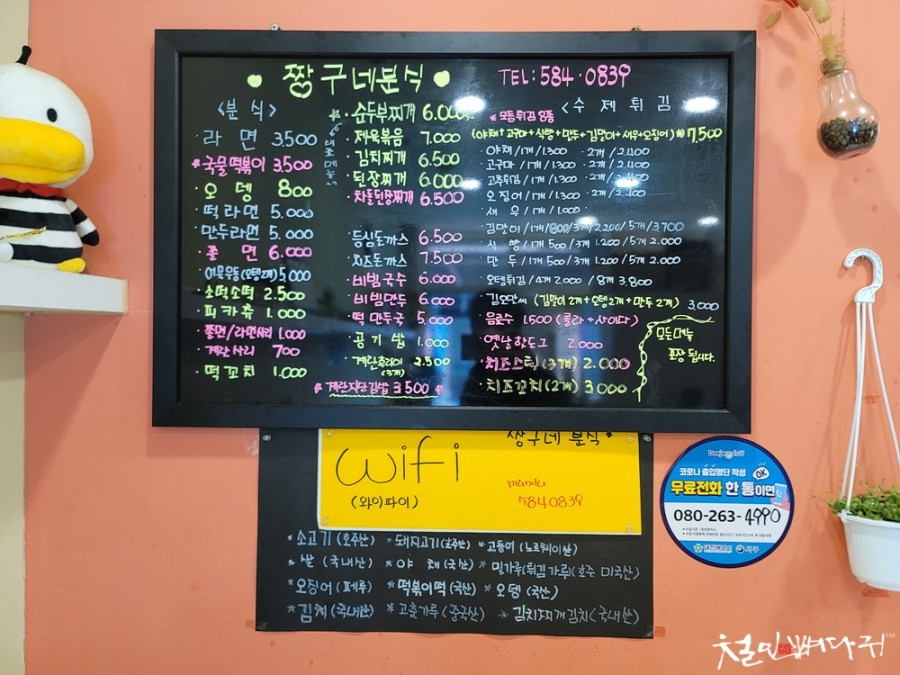 짱구네분식 TEL: 584·0839
<분식>
라면 3,500
*국물떡볶이 3,500
오뎅 800
떡라면 5,000
만두라면 5,000
쫄면 6,000
어묵우동(오뎅2개) 5,000
소떡소떡 2,500
피카츄 1,000
쫄면/라면사리 1,000
계란사리 700
떡꼬치 1,000
·순두부찌개 6,000
·제육볶음 7,000
·김치찌개 6,500
·된장찌개 6,000
·차돌된장찌개 6,500
·등심돈까스 6,500
·치즈돈까스 7,500
·비빔국수 6,000
·비빔만두 6,000
·떡만두국 5,000
·공기밥 1,000
·계란후라이 2,500
(3개)
*계란지단김밥 3,500
<수제튀김>
*모듬튀김 8종
(야채+고구마+식빵+만두+김말이+새우+오징어) 7,500
·야채/1개/1,300 ·2개/2,400
·고구마/1개/1,300 ·2개/2,400
·고추튀김/1개/1,300 ·2개/2,400
·오징어/1개/1,300 ·2개/2,400
·새우/1개/1,000
·김말이/1개/800/3개/2,200/5개/3,700
·식빵/1개 500/3개 1,200/5개 2,000
·만두/1개 500/3개 1,200/5개 2,000
·오뎅튀김/4개 2,000/8개 3,800
·김오만씨 (김말이2개+오뎅2개+만두2개) 3,000
·음료수 1,500 (콜라+사이다)
·옛날핫도그 2,000
·치즈스틱(3개) 2,000
·치즈꼬치(2개) 3,000
모든메뉴
포장 됩니다.
짱구네 분식*
wifi
(와이파이)
5840839
*소고기(호주산) *돼지고기(호주산) *고등어(노르웨이산)
*쌀(국내산) *야채(국산) *밀가루(튀김가루)(호주.미국산)
*오징어(페루) *떡볶이떡(국산) *오뎅(국산)
*김치(국내산) *고춧가루(중국산) *김치찌개김치(국내산)
코로나 출입명단 작성 OK
무료전화 한 통이면
080-263-4990
대전광역시 서구
철인뼈다귀